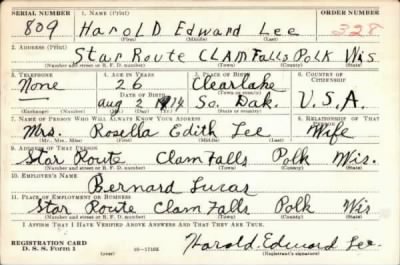 SERIAL NUMBER 1. NAME (Print) ORDER NUMBER
809 HaroLD Edward Lee 328
(First) (Middle) (Last)
2. ADDRESS (Print)
Star Route CLAM Falls POLK Wis
(Number and street or R. F. D. number) (Town) (County) (State)
3. TELEPHONE 4. AGE IN YEARS 5. PLACE OF BIRTH 6. COUNTRY OF CITIZENSHIP
None 26 Clearlake
DATE OF BIRTH (Town or county)
Aug 2 1914 So. Dak. U.S.A.
(Exchange) (Number) (Mo.) (Day) (Yr.) (State or country)
7. NAME OF PERSON WHO WILL ALWAYS KNOW YOUR ADDRESS 8. RELATIONSHIP OF THAT PERSON
Mrs. Rosella Edith Lee Wife
(Mr., Mrs., Miss) (First) (Middle) (Last)
9. ADDRESS OF THAT PERSON
Star Route Clam Falls Polk Wis.
(Number and street or R. F. D. number) (Town) (County) (State)
10. EMPLOYER'S NAME
Bernard Lucas
11. PLACE OF EMPLOYMENT OR BUSINESS
Star Route Clam Falls Polk Wis
(Number and street or R. F. D. number) (Town) (County) (State)
I AFFIRM THAT I HAVE VERIFIED ABOVE ANSWERS AND THAT THEY ARE TRUE.
REGISTRATION CARD
D. S. S. Form 1 16-17105 Harold Edward Lee
(Registrant's signature)